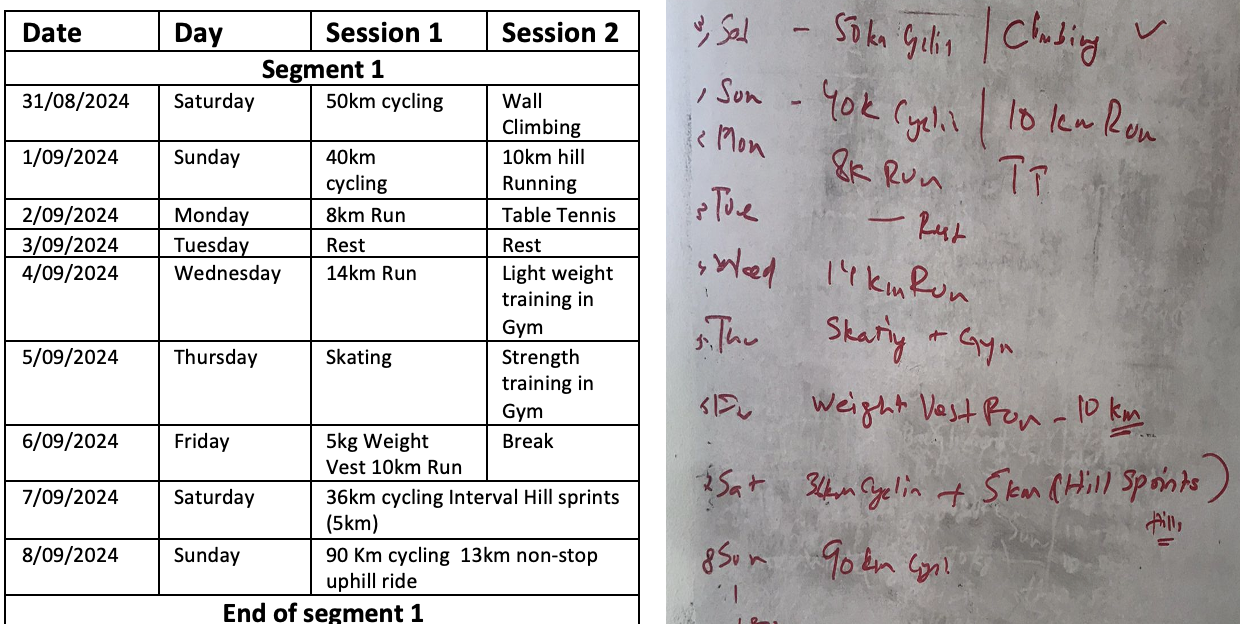 Date Day Session 1 Session 2
Segment 1
31/08/2024 Saturday 50km cycling Wall
Climbing
1/09/2024 Sunday 40km 10km hill
cycling Running
2/09/2024 Monday 8km Run Table Tennis
3/09/2024 Tuesday Rest Rest
4/09/2024 Wednesday 14km Run Light weight
training in
Gym
5/09/2024 Thursday Skating Strength
training in
Gym
6/09/2024 Friday 5kg Weight Break
Vest 10km Run
7/09/2024 Saturday 36km cycling Interval Hill sprints
(5km)
8/09/2024 Sunday 90 Km cycling 13km non-stop
uphill ride
End of segment 1
- 50km | Climbing ✓
Sun - 40k Cycli | 10 km Run
Mon 8k Run TT
Tue —
14 km Run
Thu +
Weight Vest Run - 10 km
Sat Cyclin + 5km (Hill Sprints)
Hills
8 Sun 90km